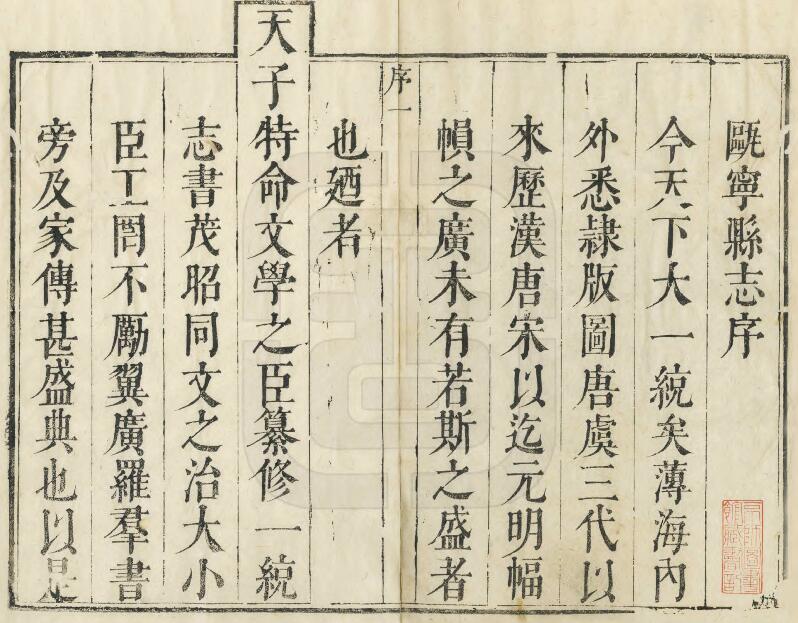 甌寧縣志序
今天下大一統矣薄海內
外悉隷版圖唐虞三代以
來歷漢唐宋以迄元明幅
幀之廣未有若斯之盛者
序一
也廼者
天子特命文學之臣纂修一統
志書茂昭同文之治大小
臣工罔不勵翼廣羅羣書
旁及家傳甚盛典也以是